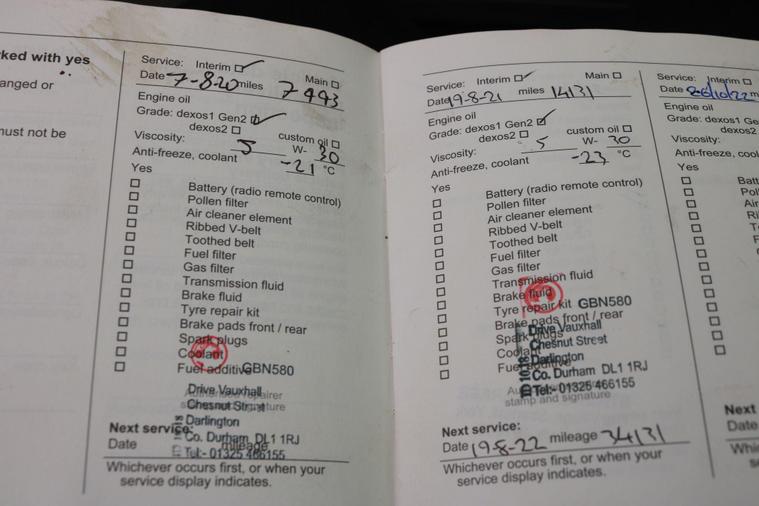 ked with yes
anged or
must not be
Service: Interim ☑ Main ☐
Date 7-8-20 miles 7993
Engine oil
Grade: dexos1 Gen2 ☑
dexos2 ☐ custom oil ☐
Viscosity: 5 W- 30
Anti-freeze, coolant -21 °C
Yes
☐ Battery (radio remote control)
☐ Pollen filter
☐ Air cleaner element
☐ Ribbed V-belt
☐ Toothed belt
☐ Fuel filter
☐ Gas filter
☐ Transmission fluid
☐ Brake fluid
☐ Tyre repair kit
☐ Brake pads front / rear
☐ Spark plugs
☐ Coolant
☐ Fuel additive GBN580
Drive Vauxhall
Authorised repairer
Chesnut Street
stamp and signature
Darlington
Co. Durham DL1 1RJ
Tel:- 01325 466155
Next service:
Date mileage
Whichever occurs first, or when your
service display indicates.
Service: Interim ☑ Main ☐
Date 19-8-21 miles 14131
Engine oil
Grade: dexos1 Gen2 ☑
dexos2 ☐ custom oil ☐
Viscosity: 5 W- 30
Anti-freeze, coolant -23 °C
Yes
☐ Battery (radio remote control)
☐ Pollen filter
☐ Air cleaner element
☐ Ribbed V-belt
☐ Toothed belt
☐ Fuel filter
☐ Gas filter
☐ Transmission fluid
☐ Brake fluid
☐ Tyre repair kit GBN580
☐ Brake pads front / rear
☐ Spark plugs
☐ Coolant
☐ Fuel additive
Drive Vauxhall
Chesnut Street
Darlington
Co. Durham DL1 1RJ
Tel:- 01325 466155
stamp and signature
Next service:
Date 19-8-22 mileage 34131
Whichever occurs first, or when your
service display indicates.
Service: Interim ☐
Date
Engine oil
Grade: dexos1 Ge
dexos2
Viscosity:
Anti-freeze, cool
Yes
☐ Batt
☐ Pol
☐ Air
☐ Ri
☐ T
☐ F
Next
Date
Whi